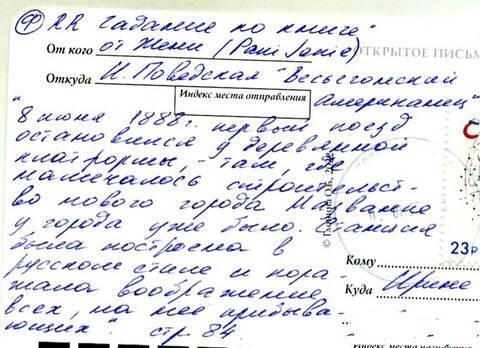 RR "Гадание по книге"
От кого от Жени (Pani Janie)
ОТКРЫТОЕ ПИСЬМ
Откуда И. Поведская "Весьегонский
Индекс места отправления
Американец"
"8 июня 1888г. первый поезд
остановился у деревянной
платформы, - там, где
намечалось строительст-
во нового города. Название
у города уже было. Станция
была построена в
русском стиле и пора-
жала воображение
всех, на нее прибыва-
ющих". стр. 84
23р
Кому
Куда Ирине